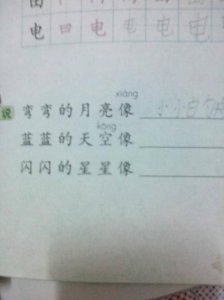 由
电 电 电 电 电
xiàng
说 弯弯的月亮像 小小白
kōng
蓝蓝的天空像
闪闪的星星像